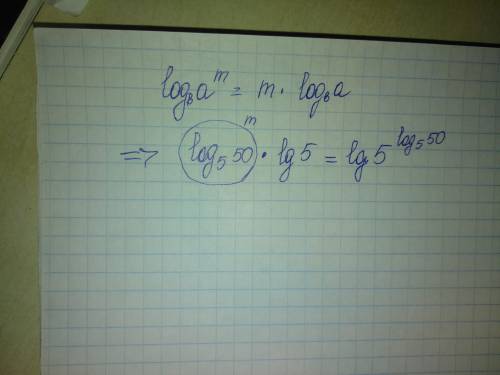 log_b a^m = m · log_b a
m
⇒ log_5 50 · lg 5 = lg 5^(log_5 50)